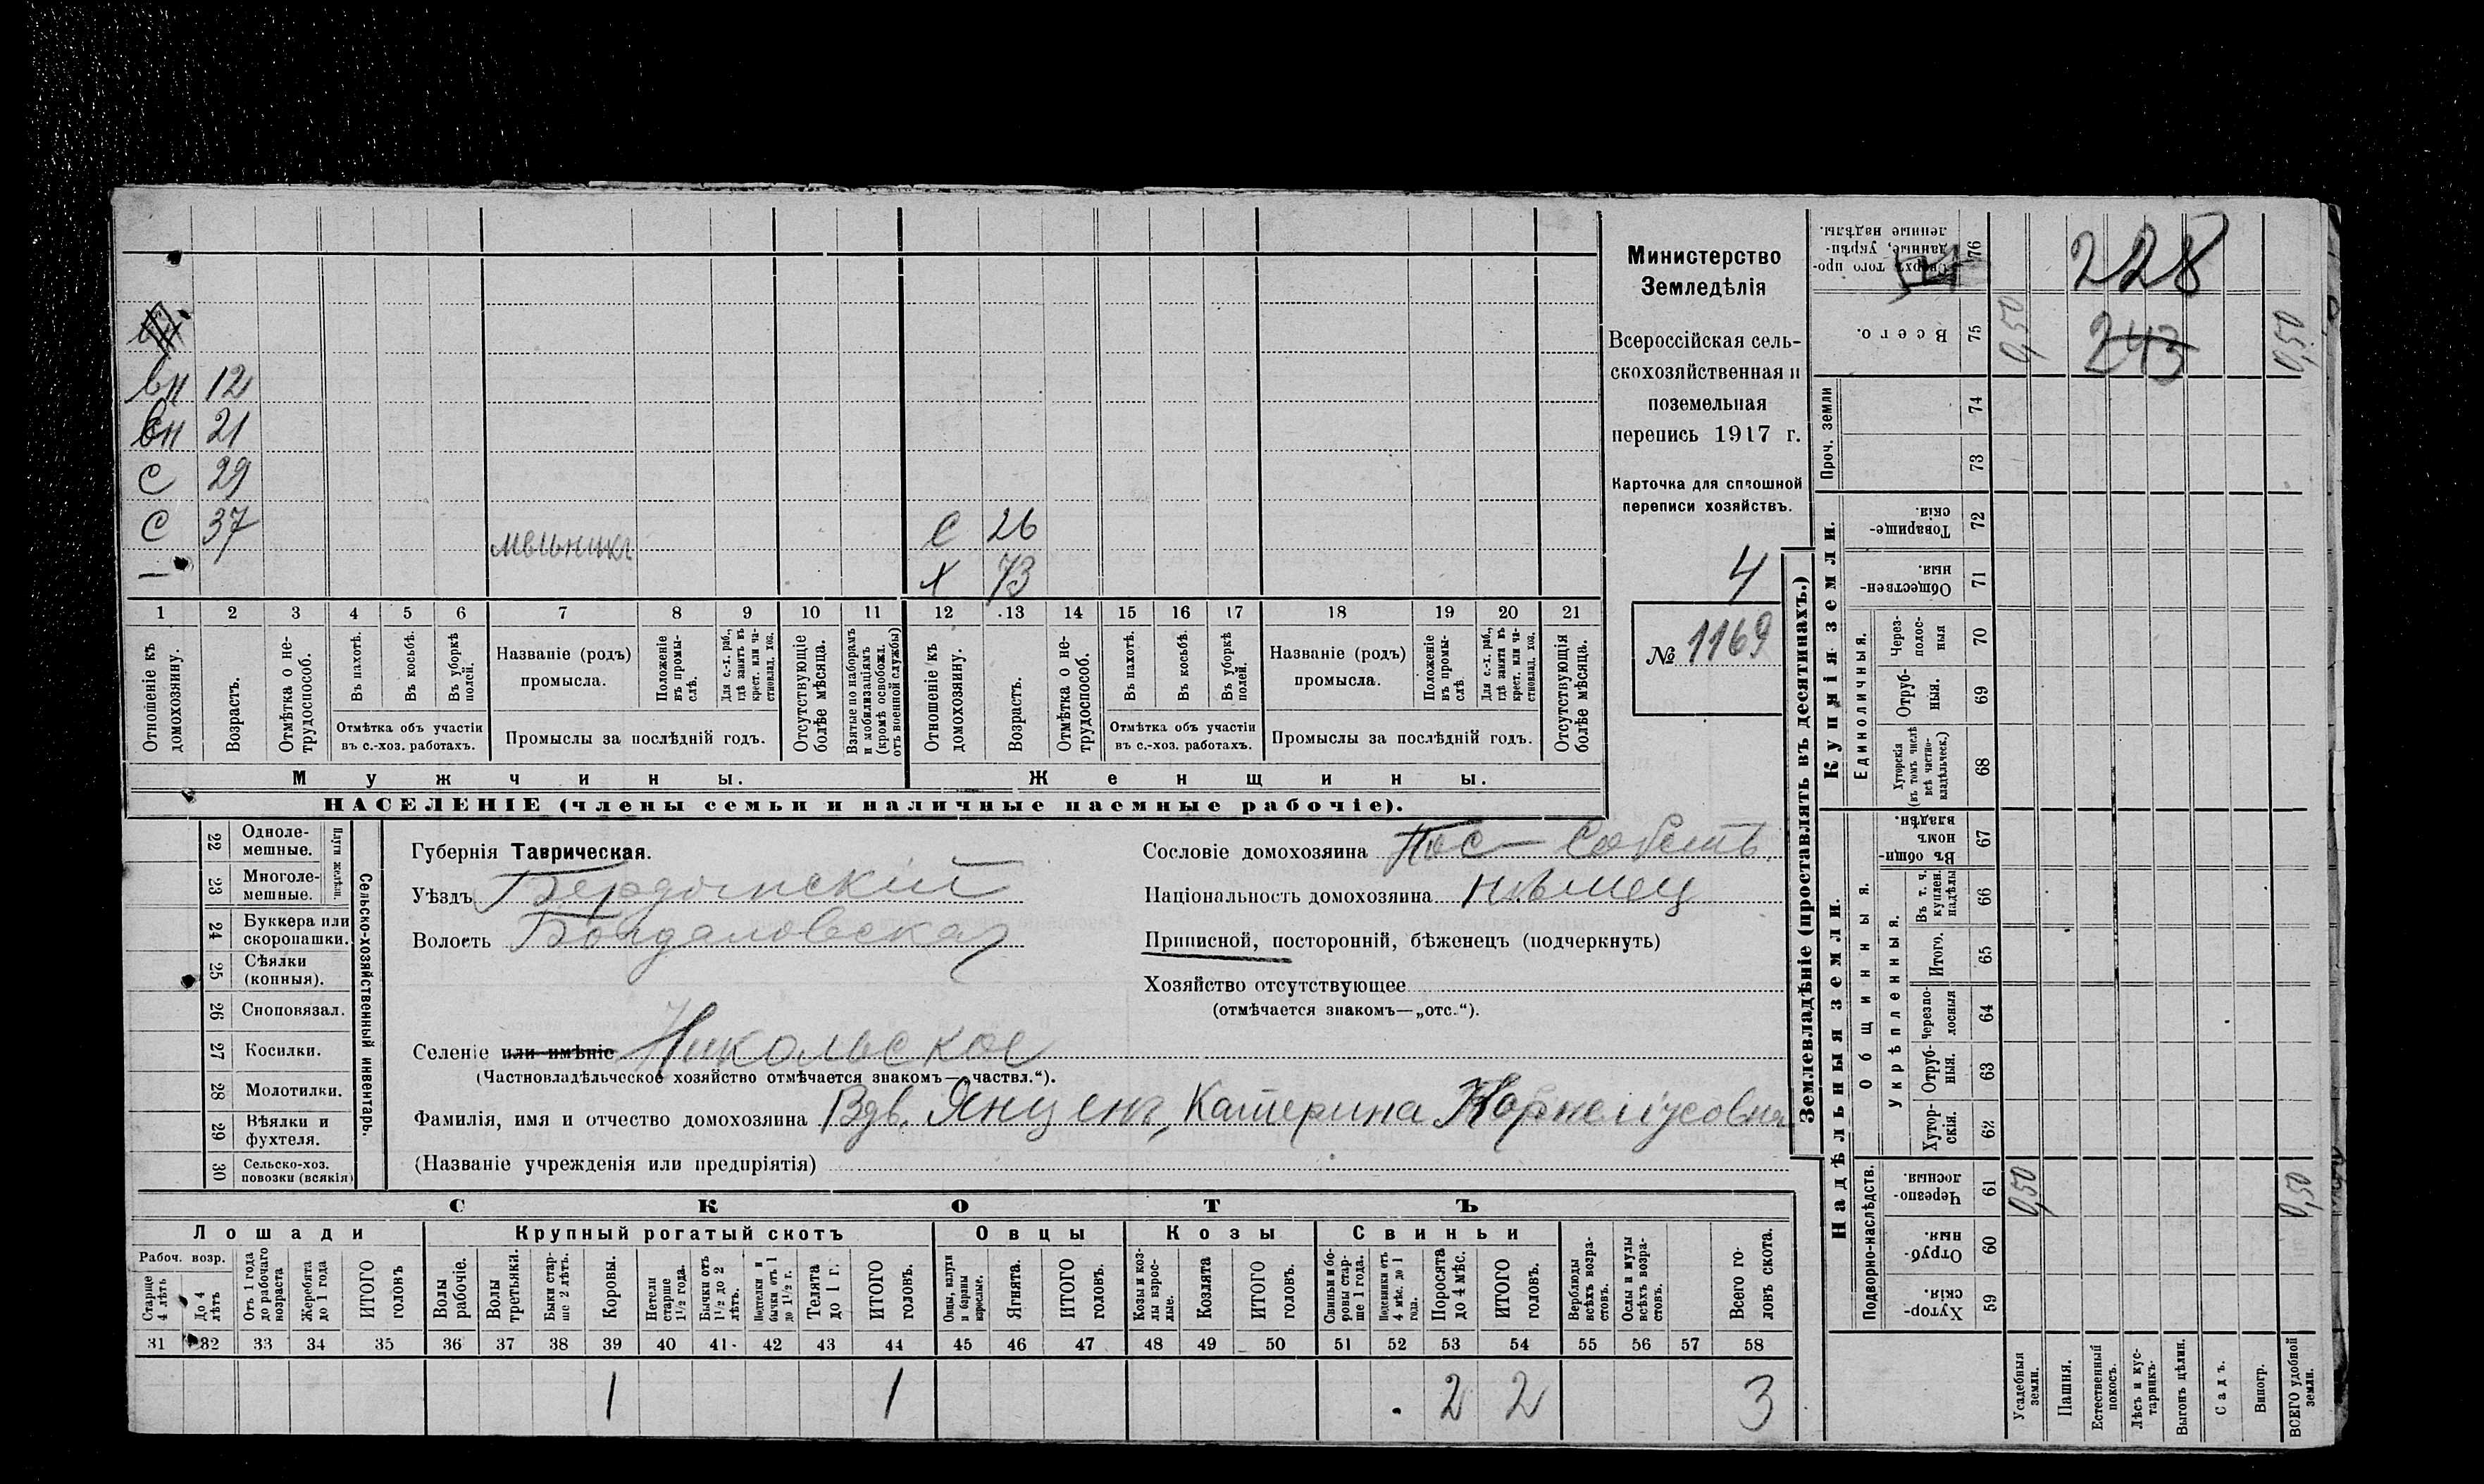 вн 12
вн 21
С 29
С 37
— мельникъ
С 26
х 73
1 2 3 4 5 6 7 8 9 10 11 12 13 14 15 16 17 18 19 20 21
Отношеніе къ домохозяину.
Возрастъ.
Отмѣтка о не-
трудоспособ.
Въ пахотѣ.
Въ косьбѣ.
Въ уборкѣ полей.
Отмѣтка объ участіи
въ с.-хоз. работахъ.
Названіе (родъ)
промысла.
Положеніе въ промы-
слѣ.
Для с.-х. раб., гдѣ занятъ въ крест. или ча-
стновлад. хоз.
Промыслы за послѣдній годъ.
Отсутствующіе болѣе мѣсяца.
Взятые по наборамъ и мобилизаціямъ (кромѣ освобожд. отъ военной службы)
Отношеніе къ домохозяину.
Возрастъ.
Отмѣтка о не-
трудоспособ.
Въ пахотѣ.
Въ косьбѣ.
Въ уборкѣ полей.
Отмѣтка объ участіи
въ с.-хоз. работахъ.
Названіе (родъ)
промысла.
Положеніе въ промы-
слѣ
Для с.-х. раб., гдѣ занята въ крест. или ча-
стновлад. хоз.
Промыслы за послѣдній годъ.
Отсутствующія болѣе мѣсяца.
Мужчины. Женщины.
НАСЕЛЕНІЕ (члены семьи и наличные наемные рабочіе).
Министерство
Земледѣлія
Всероссійская сель-
скохозяйственная и
поземельная
перепись 1917 г.
Карточка для сплошной
переписи хозяйствъ.
4
№ 1169
22 Одноле-
мешные.
23 Многоле-
мешные.
Плуги желѣзн.
24 Буккера или
скоропашки.
25 Сѣялки
(конныя).
26 Сноповязал.
27 Косилки.
28 Молотилки.
29 Вѣялки и
фухтеля.
30 Сельско-хоз.
повозки (всякія)
Сельско-хозяйственный инвентарь.
Губернія Таврическая.
Уѣздъ Бердянскій
Волость
Селеніе или имѣніе Никольское
(Частновладѣльческое хозяйство отмѣчается знакомъ—„частвл.“).
Фамилія, имя и отчество домохозяина Вдв. Янценъ, Катерина Корнелиусовна
(Названіе учрежденія или предпріятія)
Сословіе домохозяина Пос- Собств.
Національность домохозяина Нѣмец
Приписной, посторонній, бѣженецъ (подчеркнуть)
Хозяйство отсутствующее
(отмѣчается знакомъ—„отс.“).
СКОТЪ
Лошади Крупный рогатый скотъ Овцы Козы Свиньи
Рабоч. возр.
Старше 4 лѣтъ
До 4 лѣтъ
Отъ 1 года до рабочаго возраста
Жеребята до 1 года
ИТОГО головъ
Волы рабочіе.
Волы третьяки.
Быки стар-
ше 2 лѣтъ.
Коровы.
Нетели старше 1½ года.
Бычки отъ 1½ до 2 лѣтъ.
Подтелки и бычки отъ 1 до 1½ г.
Телята до 1 г.
ИТОГО головъ.
Овцы, валухи и бараны взрослые.
Ягнята.
ИТОГО головъ.
Козы и коз-
лы взрос-
лые.
Козлята
ИТОГО головъ.
Свиньи и бо-
ровы стар-
ше 1 года.
Подсвинки отъ 4 мѣс. до 1 года.
Поросята до 4 мѣс.
ИТОГО головъ.
Верблюды всѣхъ возра-
стовъ.
Ослы и мулы всѣхъ возра-
стовъ.
Всего го-
ловъ скота.
31 32 33 34 35 36 37 38 39 40 41 42 43 44 45 46 47 48 49 50 51 52 53 54 55 56 57 58
1 1 2 2 3
Землевладѣніе (проставлять въ десятинахъ.)
Надѣльныя земли.
Купчія земли.
Проч. земли
Подворно-наслѣдств.
Общинныя.
Укрѣпленныя.
Единоличныя.
Сверхъ того про-
данные, укрѣп-
ленные надѣлы. 76
228
Всего. 75
0,50 243 0,50
74
73
Товарище-
скія. 72
Обществен-
ныя. 71
Через-
полос-
ныя 70
Отруб-
ныя. 69
Хуторскія (въ томъ числѣ всѣ частно-
владѣльческ.) 68
Въ общин-
номъ владѣн. 67
Въ т. ч. куплен. надѣлы 66
Итого. 65
Черезпо-
лосныя 64
Отруб-
ныя. 63
Хутор-
скія. 62
Черезпо-
лосныя. 61
0,50 0,50
Отруб-
ныя. 60
Хутор-
скія. 59
Усадебныя земли.
Пашня.
Естественный покосъ.
Лѣсъ и кус-
тарникъ.
Выгонъ цѣлин.
Садъ.
Виногр.
ВСЕГО удобной земли.